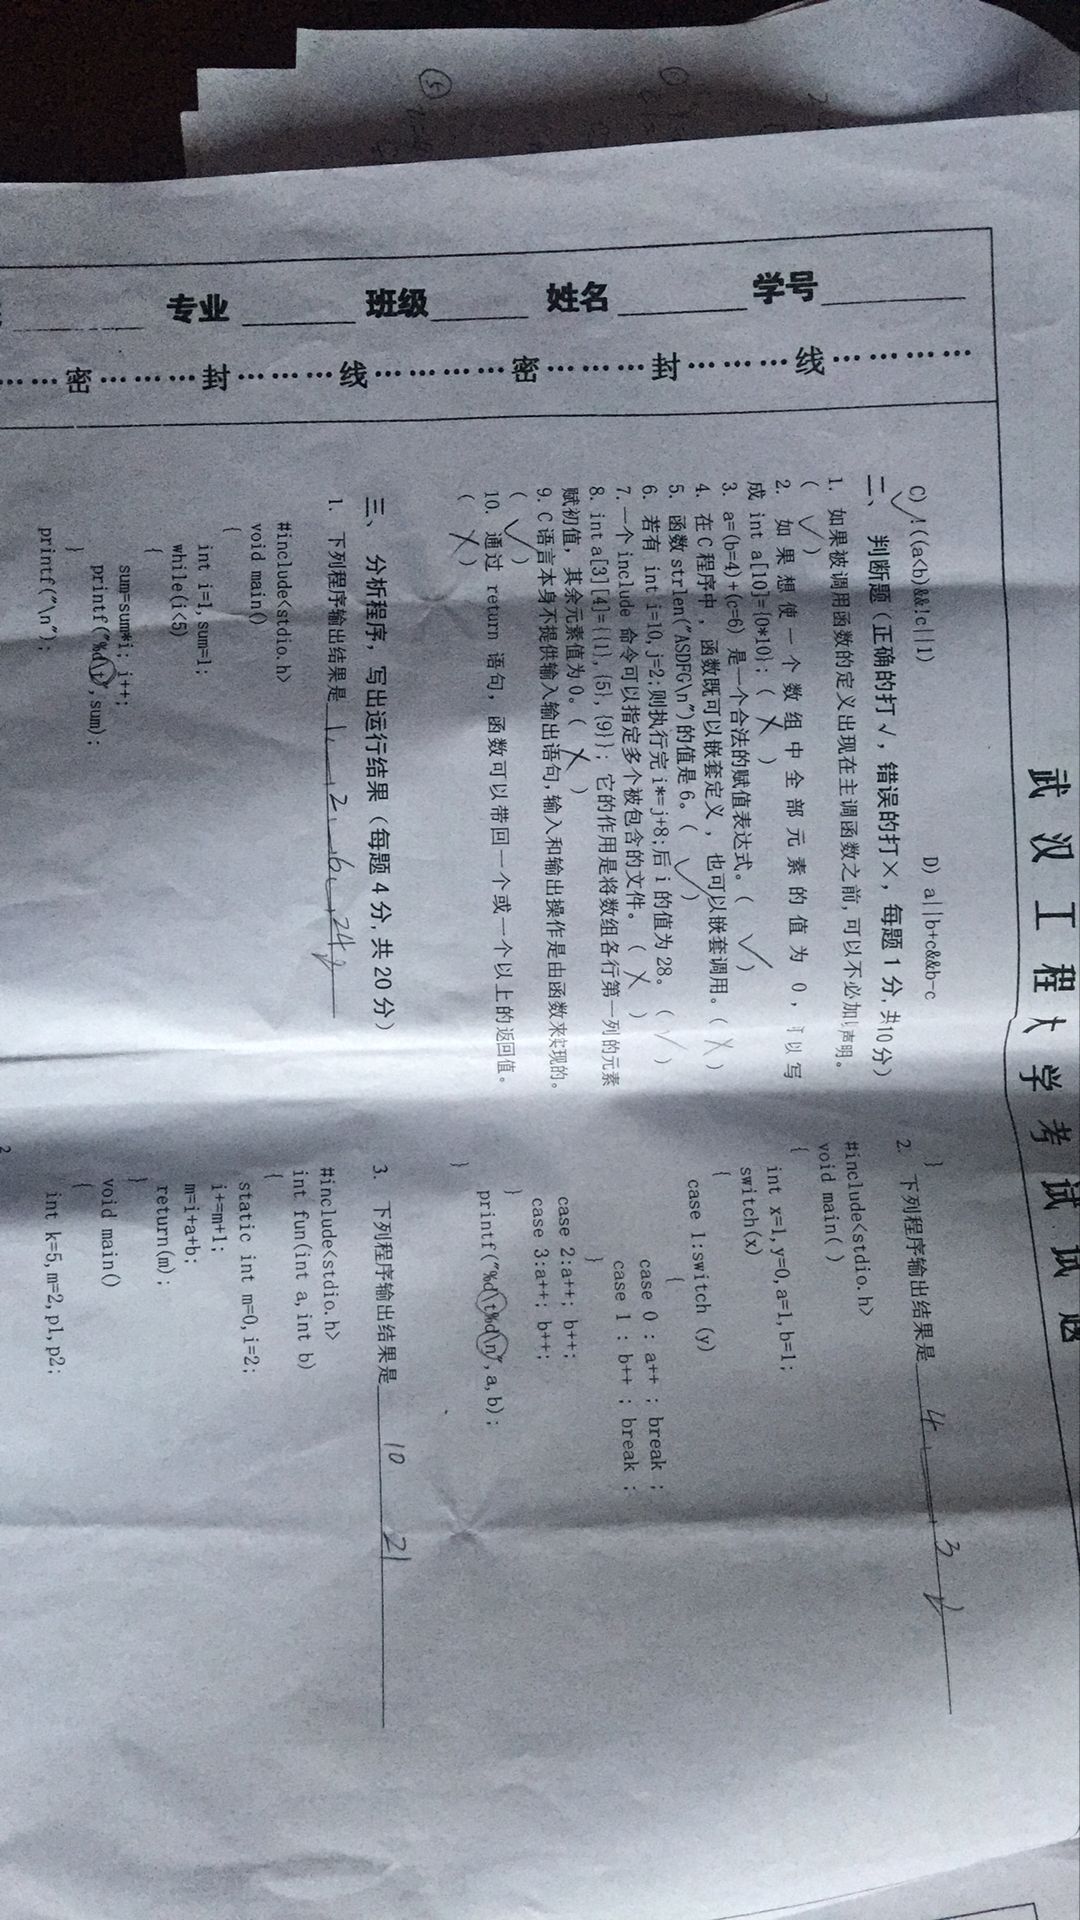 武汉工程大学考试试题
学号
姓名
班级
专业
线 封 密 线 封 密
C) !((a<b)&&!c||1) D) a||b+c&&b-c
二、 判断题(正确的打√，错误的打×，每题1分,共10分)
1. 如果被调用函数的定义出现在主调函数之前,可以不必加声明。
( √ )
2. 如果想使一个数组中全部元素的值为 0，可以写
成 int a[10]={0*10}; ( X )
3. a=(b=4)+(c=6) 是一个合法的赋值表达式。( √ )
4. 在C程序中，函数既可以嵌套定义，也可以嵌套调用。( X )
5. 函数 strlen("ASDFG\n")的值是6。( √ )
6. 若有 int i=10,j=2;则执行完 i*=j+8;后 i 的值为 28。 ( √ )
7. 一个 include 命令可以指定多个被包含的文件。( X )
8. int a[3][4]={{1},{5},{9}}; 它的作用是将数组各行第一列的元素
赋初值，其余元素值为0。( X )
9. C语言本身不提供输入输出语句,输入和输出操作是由函数来实现的。
( √ )
10. 通过 return 语句，函数可以带回一个或一个以上的返回值。
( X )
三、 分析程序，写出运行结果（每题4分,共20分）
1. 下列程序输出结果是 1, 2, 6, 24
#include<stdio.h>
void main()
{
int i=1,sum=1;
while(i<5)
{
sum=sum*i; i++;
printf("%d\t",sum);
}
printf("\n");
}
2. 下列程序输出结果是 4 3
#include<stdio.h>
void main( )
{
int x=1,y=0,a=1,b=1;
switch(x)
{
case 1:switch (y)
{
case 0 : a++ ; break ;
case 1 : b++ ; break ;
}
case 2:a++; b++;
case 3:a++; b++;
}
printf("%d\t%d\n",a,b);
}
3. 下列程序输出结果是 10 21
#include<stdio.h>
int fun(int a,int b)
{
static int m=0,i=2;
i+=m+1;
m=i+a+b;
return(m);
}
void main()
{
int k=5,m=2,p1,p2;
2